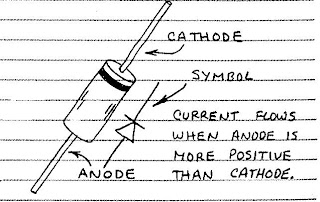 CATHODE
SYMBOL
CURRENT FLOWS
WHEN ANODE IS
MORE POSITIVE
THAN CATHODE.
ANODE